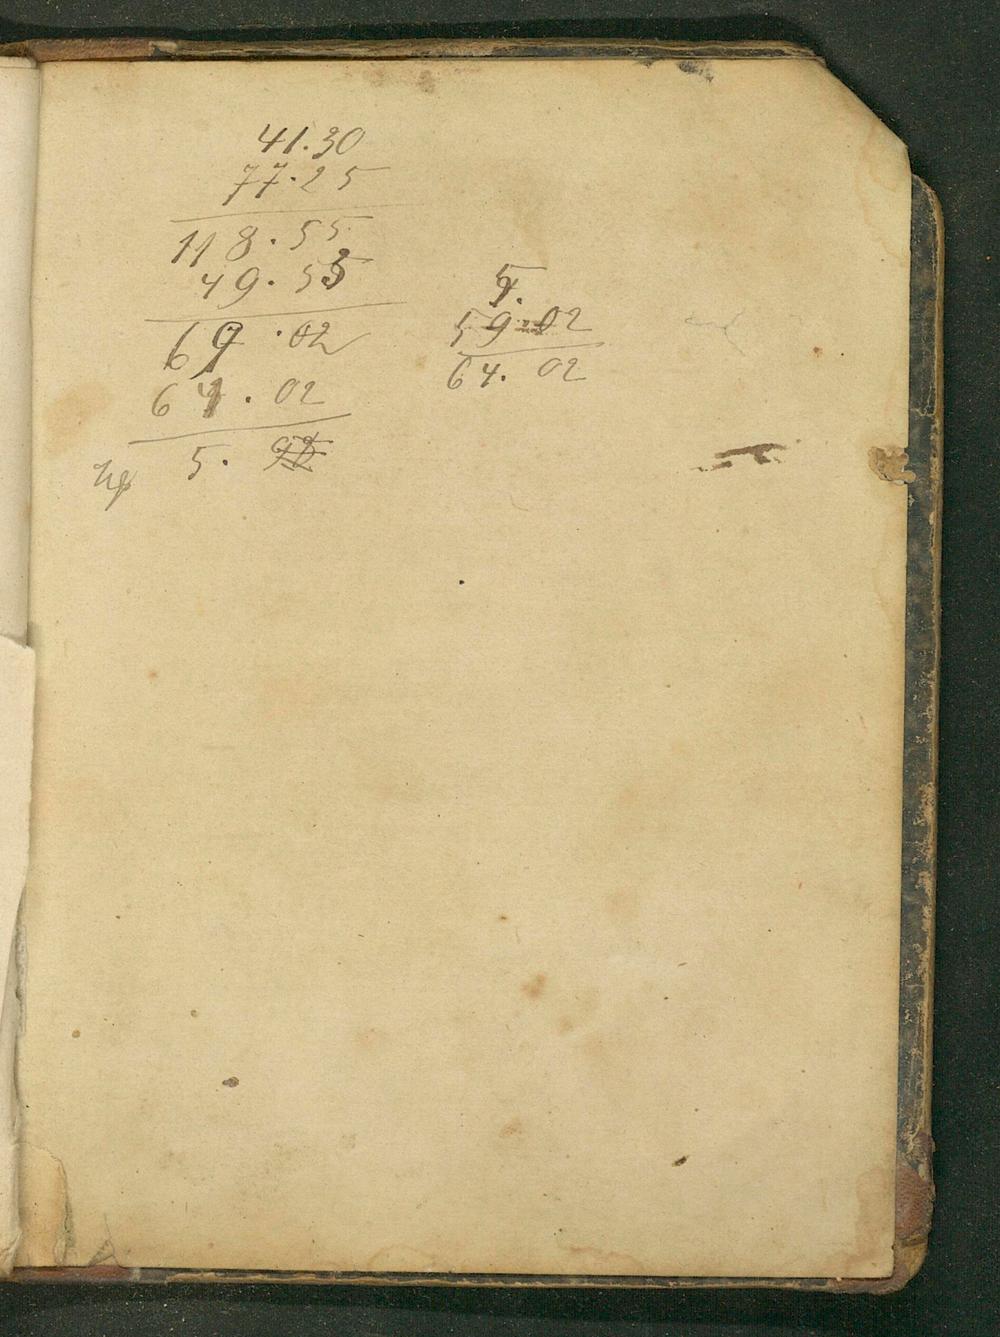 41.30
77.25
118.55
49.53
69.02
64.02
5.
5.
59.02
64.02